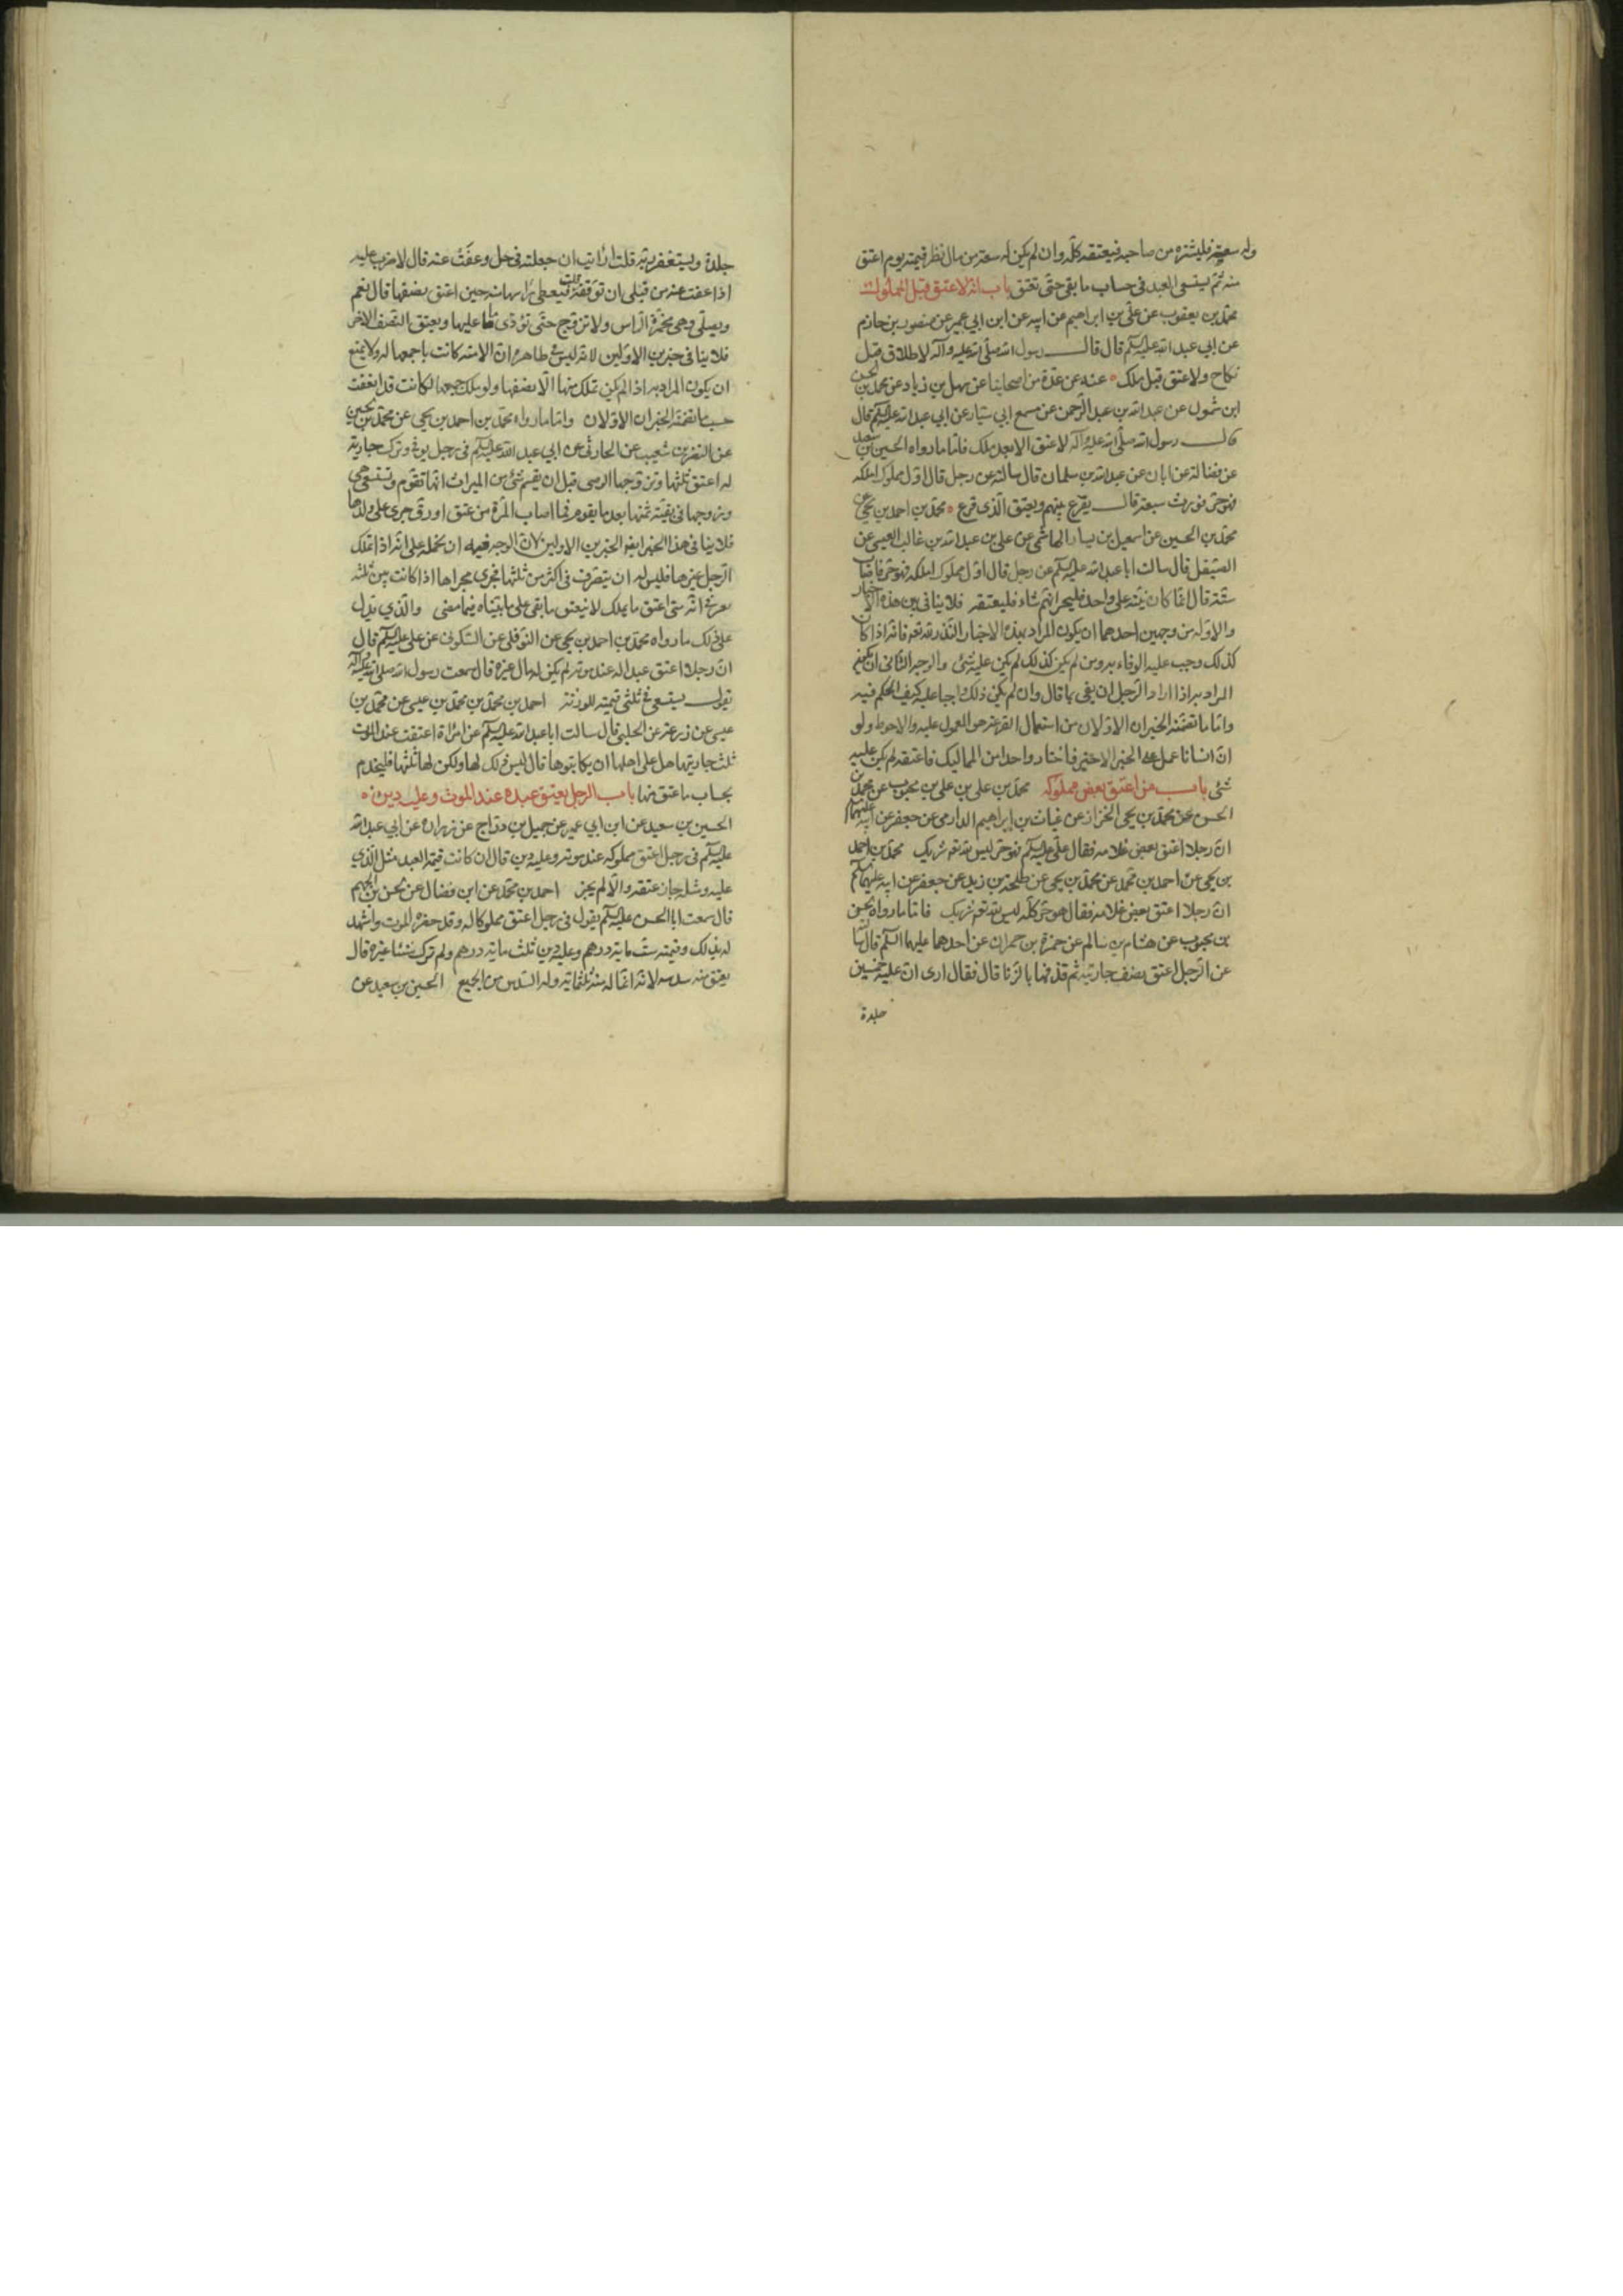 وله سعة فليشتره من صاحبه فيعتقه كله وان لم يكن له سعة من مال نظر قيمته يوم اعتق
منه ثم يسعى العبد فى حساب ما بقى حتى يعتق باب انه لا عتق قبل الملوك
محمد بن يعقوب عن على بن ابراهيم عن ابيه عن ابن ابي عمير عن منصور بن حازم
عن ابي عبد الله عليه السلام قال قال رسول الله صلى الله عليه وآله لا طلاق قبل
نكاح ولا عتق قبل ملك عنه عن عدة من اصحابنا عن سهل بن زياد عن محمد بن الحسن
ابن شمون عن عبد الله بن عبد الرحمن عن مسمع ابي سيار عن ابي عبد الله عليه السلام قال
قال رسول الله صلى الله عليه وآله لا عتق الا بعد ملك فاما ما رواه الحسين بن سعيد
عن فضالة عن ابان عن عبد الله بن سليمان قال سالته عن رجل قال اول مملوك املكه
فهو حر فورث سبعة قال يقرع بينهم ويعتق الذى قرع محمد بن احمد بن يحيى عن
محمد بن الحسين عن اسمعيل بن يسار الهاشمى عن على بن عبد الله بن غالب القيسى عن
الصيقل قال سالت ابا عبد الله عليه السلام عن رجل قال اول مملوك املكه فهو حر فاصاب
ستة قال انما كان نيته على واحد فليخير ايهم شاء فليعتقه فلا ينافى بين هذه الاخبار
والاوله من وجهين احدهما ان يكون المراد بهذه الاخبار النذر لله تعالى فانه اذا كان
كذلك وجب عليه الوفاء به ومن لم يكن كذلك لم يكن عليه شئ والوجه الثانى ان يكون
المراد به اذا اراد الرجل ان يفى بما قال وان لم يكن ذلك واجبا عليه كيف الحكم فيه
واما ما تضمنه الخبران الاولان من استعمال القرعة هو المعول عليه والاحوط ولو
ان انسانا عمل على الخبر الاخير فاختار واحدا من المماليك فاعتقه لم يكن عليه
شئ باب من اعتق بعض مملوكه محمد بن على بن محبوب عن محمد بن
الحسن عن محمد بن يحيى الخزاز عن غياث بن ابراهيم الدارمى عن جعفر عن ابيه عليهما
ان رجلا اعتق بعض غلامه فقال على عليه السلام هو حر ليس لله شريك محمد بن احمد
بن يحيى عن احمد بن محمد عن محمد بن يحيى عن طلحة بن زيد عن جعفر عن ابيه عليهما السلام
ان رجلا اعتق بعض غلامه فقال هو حر كله ليس لله شريك فاما ما رواه الحسن
بن محبوب عن هشام بن سالم عن حمزة بن حمران عن احدهما عليهما السلام قال سالته
عن الرجل اعتق نصف جاريته ثم قذفها بالزنا قال فقال ارى ان عليه خمسين
جلدة
جلدة ويستغفر ربه قلت ارايت ان جعلته فى حل وعفت عنه قال لا ضرب عليه
اذا عفت عنه من قبل ان ترفعه قلت فتغطى راسها منه حين اعتق نصفها قال نعم
وتصلى وهى مخمرة الراس ولا تزوج حتى تؤدى ما عليها ويعتق النصف الاخر
فلا ينافى خبرين الاولين لانه ليس فى ظاهره ان الامة كانت باجمعها له ولا يمنع
ان يكون المراد به اذا لم يكن تملك منها الا نصفها ولو ملك جميعها لكانت قد انعتقت
حسب ما تضمنه الخبران الاولان واما ما رواه محمد بن احمد بن يحيى عن محمد بن الحسين
عن النضر بن شعيب عن الحارثى عن ابي عبد الله عليه السلام فى رجل توفى وترك جارية
له اعتق ثلثها وتزوجها الوصى قبل ان يقسم شئ من الميراث انها تقوم وتستسعى هى
وزوجها فى بقية ثمنها بعد ما يقوم فما اصاب المرأة من عتق او رق جرى على ولدها
فلا ينافى هذا الخبر ايضا الخبرين الاولين لان الوجه فيه ان نحمله على انه اذا لم يملك
الرجل غيرها فليس له ان يتصرف فى اكثر من ثلثها فجرى مجراها اذا كانت بين ثلثه
فى انه متى اعتق ما يملك لا ينعتق ما بقى على ما بيناه فيما مضى والذى يدل
على ذلك ما رواه محمد بن احمد بن يحيى عن النوفلى عن السكونى عن على عليه السلام قال
ان رجلا اعتق عبدا له عند موته لم يكن له مال غيره قال سمعت رسول الله صلى الله عليه وآله
يقول يستسعى فى ثلثى قيمته للورثة احمد بن محمد بن محمد بن عيسى عن محمد بن
عيسى عن زرعة عن الحلبى قال سالت ابا عبد الله عليه السلام عن امراة اعتقت عند الموت
ثلث جاريتها هل على اهلها ان يكاتبوها قال ليس ذلك لها ولكن لها ثلثها فليخدم
بحساب ما عتق منها باب الرجل يعتق عبده عند الموت وعليه دين
الحسين بن سعيد عن ابن ابي عمير عن جميل بن دراج عن زراره عن ابي عبد الله
عليه السلام فى رجل اعتق مملوكه عند موته وعليه دين قال ان كانت قيمة العبد مثل الذى
عليه ومثله جاز عتقه والا لم يجز احمد بن محمد عن ابن فضال عن الحسن بن الجهم
قال سمعت ابا الحسن عليه السلام يقول فى رجل اعتق مملوكا له وقد حضره الموت واشهد
له بذلك وقيمته ست مايه درهم وعليه دين ثلث مايه درهم ولم يترك شيئا غيره قال
يعتق منه سدسه لانه انما له منه ثلثمايه وله السدس من الجميع الحسين بن سعيد عن